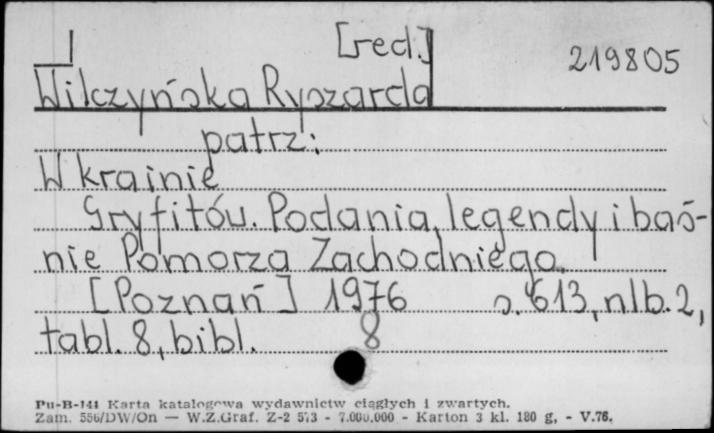 [red.]
219805
Wilczyńska Ryszarda
patrz:
W krainie
Gryfitów. Podania, legendy i baś-
nie Pomorza Zachodniego.
[Poznań] 1976 s. 613, nlb. 2,
tabl. 8, bibl. 8
Pu-B-141 Karta katalogowa wydawnictw ciągłych i zwartych.
Zam. 556/DW/On — W.Z.Graf. Z-2 573 - 7.000.000 - Karton 3 kl. 180 g, - V.76.